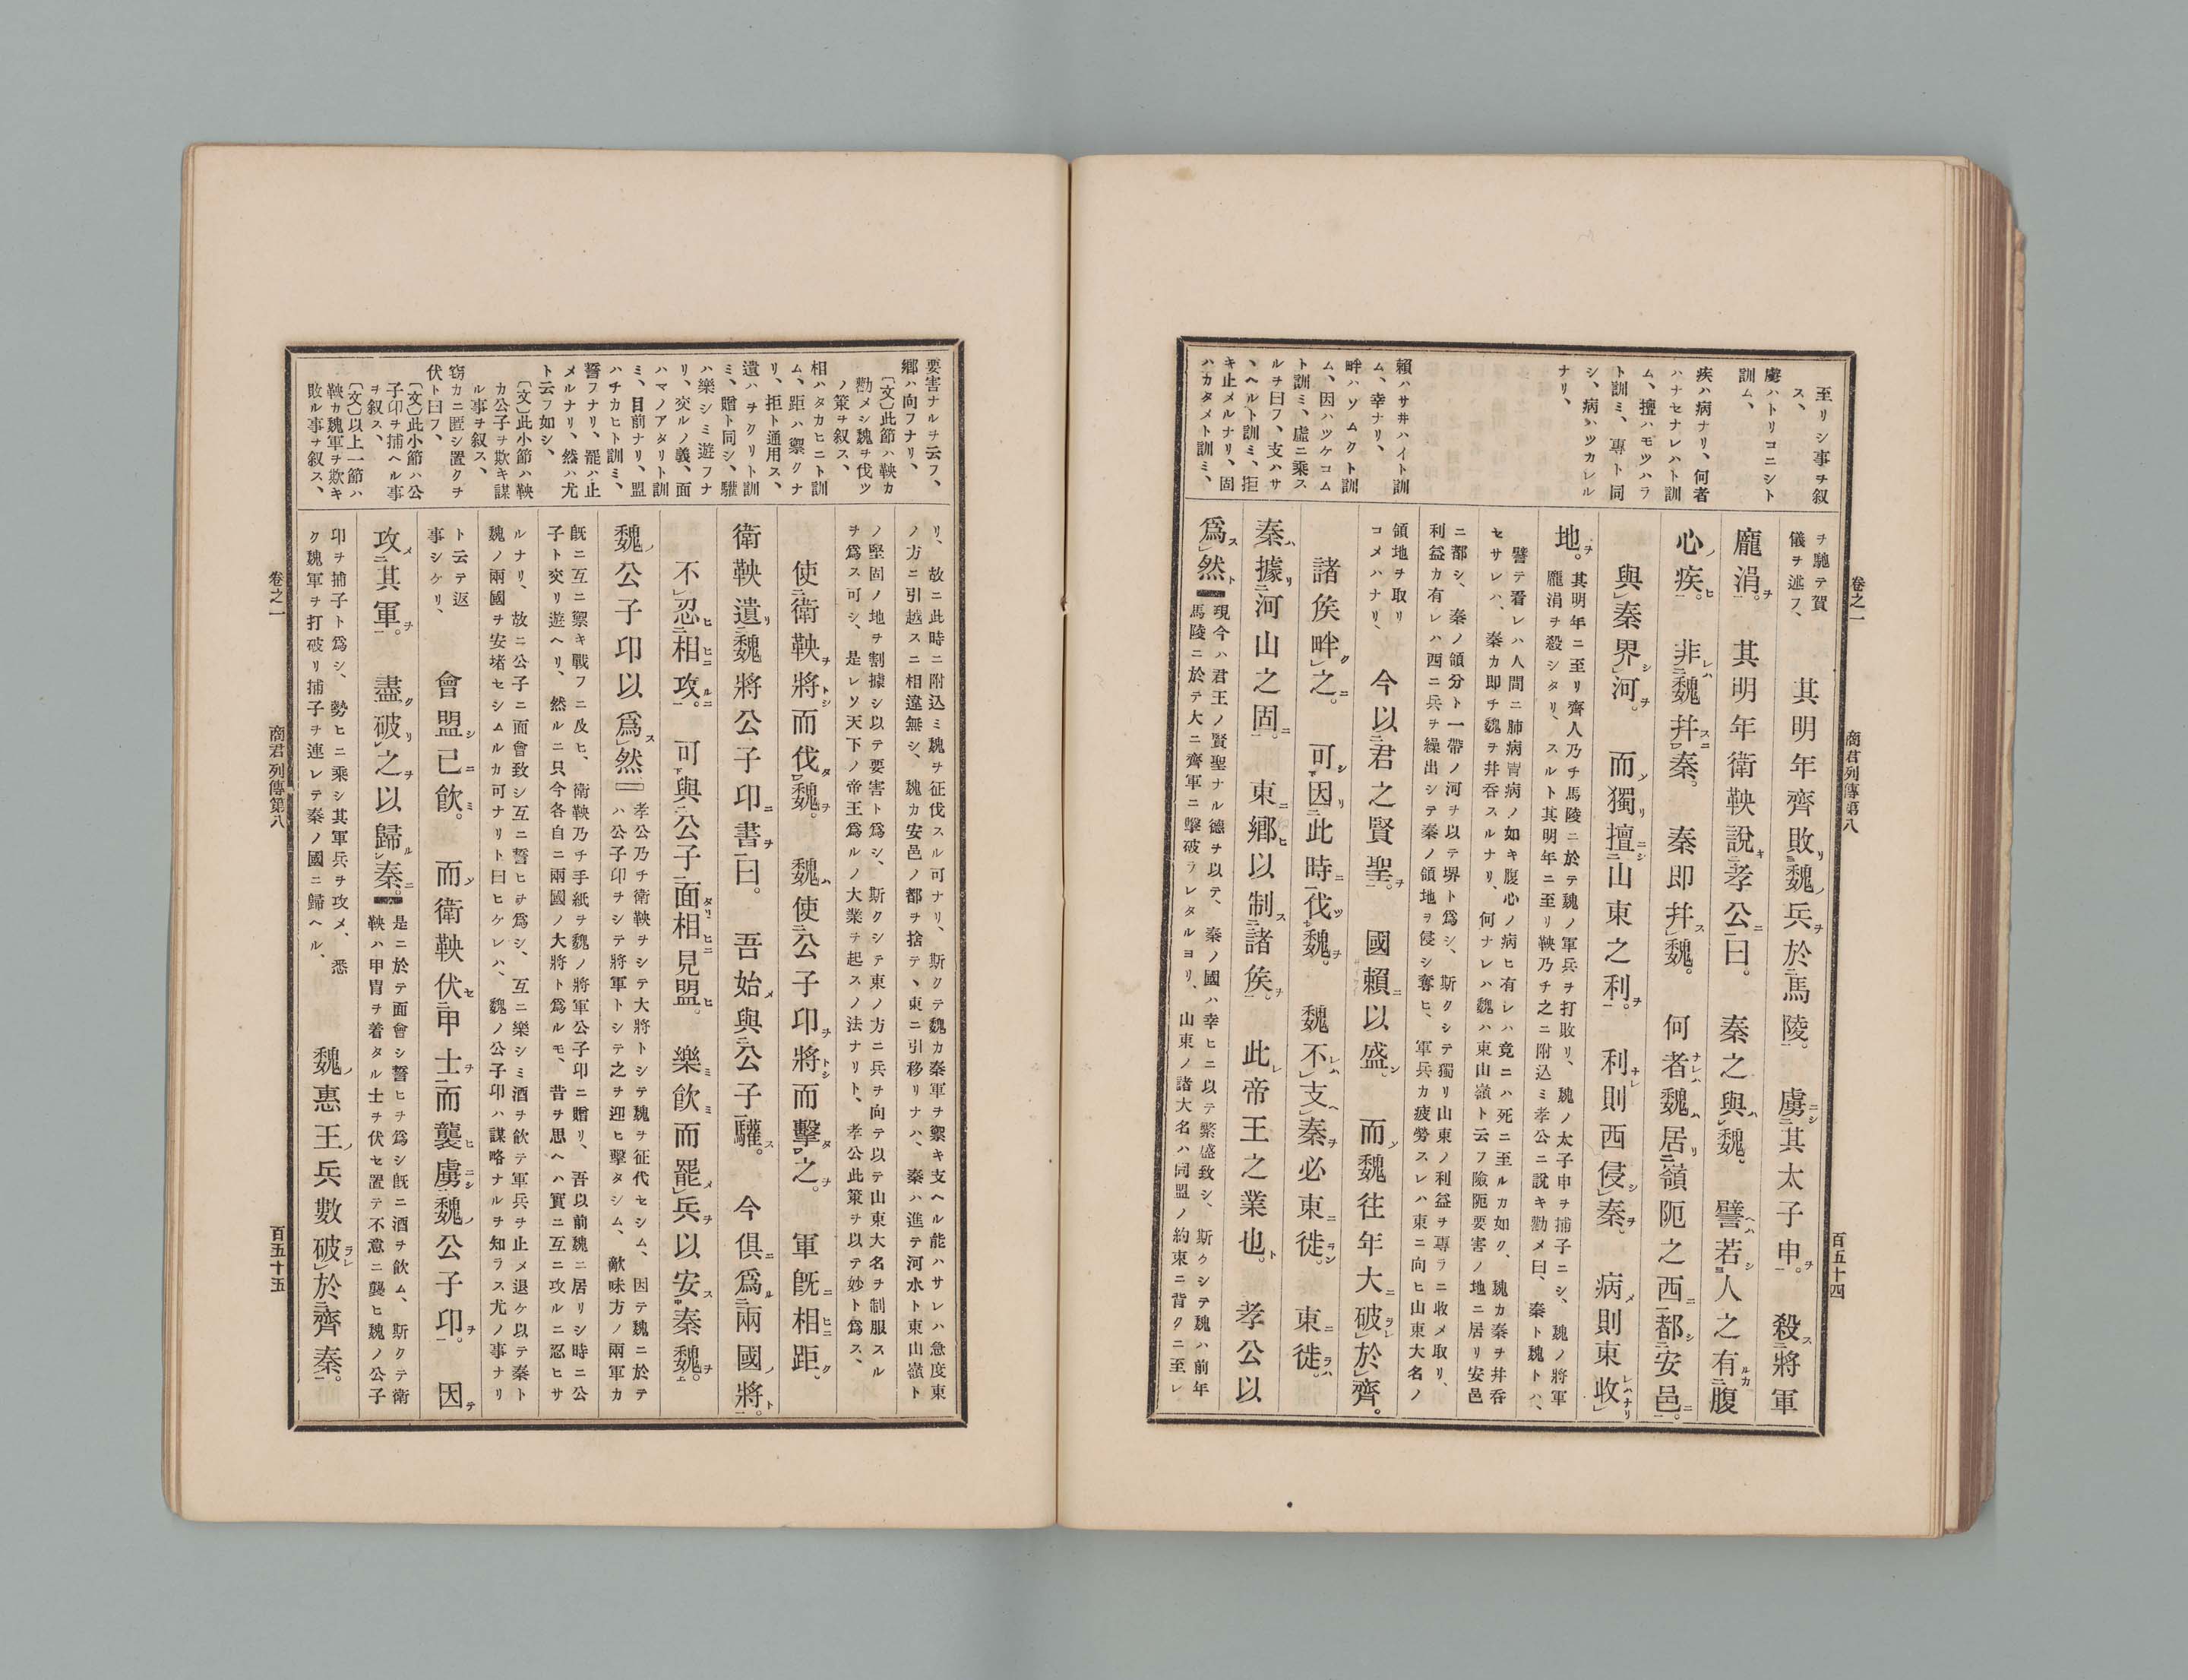 卷之一
商君列傳第八
百五十四
至リシ事ヲ叙
ス、
虜ハトリコニシト
訓ム、
疾ハ病ナリ、何者
ハナセナレハト訓
ム、擅ハモツハラ
ト訓ミ、專ト同
シ、病ハツカレル
ナリ、
賴ハサ井ハイト訓
ム、幸ナリ、
畔ハソムクト訓
ム、因ハツケコム
ト訓ミ、虛ニ乘ス
ルヲ曰フ、支ハサ
ヽヘルト訓ミ、拒
キ止メルナリ、固
ハカタメト訓ミ、
ヲ馳テ賀
儀ヲ述フ、
其明年齊敗魏兵於馬陵。虜其太子申。殺將軍
龐涓。其明年衛鞅說孝公曰。秦之與魏。譬若人之有腹
心疾。非魏幷秦。秦即幷魏。何者魏居嶺阨之西都安邑。
與秦界河。而獨擅山東之利。利則西侵秦。病則東收
地。
其明年ニ至リ齊人乃チ馬陵ニ於テ魏ノ軍兵ヲ打敗リ、魏ノ太子申ヲ捕子ニシ、魏ノ將軍
龐涓ヲ殺シタリ、スルト其明年ニ至リ鞅乃チ之ニ附込ミ孝公ニ說キ勸メ曰、秦ト魏トハ、
譬テ看レハ人間ニ肺病胃病ノ如キ腹心ノ病ヒ有レハ竟ニハ死ニ至ルカ如ク、魏カ秦ヲ井呑
セサレハ、秦カ即チ魏ヲ井呑スルナリ、何ナレハ魏ハ東山嶺ト云フ險阨要害ノ地ニ居リ安邑
ニ都シ、秦ノ領分ト一帶ノ河ヲ以テ堺ト爲シ、斯クシテ獨リ山東ノ利益ヲ專ラニ收メ取リ、
利益カ有レハ西ニ兵ヲ繰出シテ秦ノ領地ヲ侵シ奪ヒ、軍兵カ疲勞スレハ東ニ向ヒ山東大名ノ
領地ヲ取リ
コメハナリ、
今以君之賢聖。國賴以盛。而魏往年大破於齊。
諸矦畔之。可因此時伐魏。魏不支秦必東徙。東徙。
秦據河山之固。東鄉以制諸矦。此帝王之業也。孝公以
爲然
現今ハ君王ノ賢聖ナル德ヲ以テ、秦ノ國ハ幸ヒニ以テ繁盛致シ、斯クシテ魏ハ前年
馬陵ニ於テ大ニ齊軍ニ擊破ラレタルヨリ、山東ノ諸大名ハ同盟ノ約束ニ背クニ至レ
要害ナルヲ云フ、
鄉ハ向フナリ、
〔文〕此節ハ鞅カ
勸メシ魏ヲ伐ツ
ノ策ヲ叙ス、
相ハタカヒニト訓
ム、距ハ禦クナ
リ、拒ト通用ス、
遺ハヲクリト訓
ミ、贈ト同シ、驩
ハ樂シミ遊フナ
リ、交ルノ義、面
ハマノアタリト訓
ミ、目前ナリ、盟
ハチカヒト訓ミ、
誓フナリ、罷ハ止
メルナリ、然ハ尤
ト云フ如シ、
〔文〕此小節ハ鞅
カ公子ヲ欺キ謀
ル事ヲ叙ス、
窃カニ匿シ置クヲ
伏ト曰フ、
〔文〕此小節ハ公
子卬ヲ捕ヘル事
ヲ叙ス、
〔文〕以上一節ハ
鞅カ魏軍ヲ欺キ
敗ル事ヲ叙ス、
リ、故ニ此時ニ附込ミ魏ヲ征伐スル可ナリ、斯クテ魏カ秦軍ヲ禦キ支ヘル能ハサレハ急度東
ノ方ニ引越スニ相違無シ、魏カ安邑ノ都ヲ捨テヽ東ニ引移リナハ、秦ハ進テ河水ト東山嶺ト
ノ堅固ノ地ヲ割據シ以テ要害ト爲シ、斯クシテ東ノ方ニ兵ヲ向テ以テ山東大名ヲ制服スル
ヲ爲ス可シ、是レソ天下ノ帝王爲ルノ大業ヲ起スノ法ナリト、孝公此策ヲ以テ妙ト爲ス、
使衛鞅將而伐魏。魏使公子卬將而擊之。軍旣相距。
衛鞅遺魏將公子卬書曰。吾始與公子驩。今俱爲兩國將。
不忍相攻。可與公子面相見盟。樂飮而罷兵以安秦魏。
魏公子卬以爲然
孝公乃チ衛鞅ヲシテ大將トシテ魏ヲ征伐セシム、因テ魏ニ於テ
ハ公子卬ヲシテ將軍トシテ之ヲ迎ヒ擊タシム、敵味方ノ兩軍カ
旣ニ互ニ禦キ戰フニ及ヒ、衛鞅乃チ手紙ヲ魏ノ將軍公子卬ニ贈リ、吾以前魏ニ居リシ時ニ公
子ト交リ遊ヘリ、然ルニ只今各自ニ兩國ノ大將ト爲ルモ、昔ヲ思ヘハ實ニ互ニ攻ルニ忍ヒサ
ルナリ、故ニ公子ニ面會致シ互ニ誓ヒヲ爲シ、互ニ樂シミ酒ヲ飮テ軍兵ヲ止メ退ケ以テ秦ト
魏ノ兩國ヲ安堵セシムルカ可ナリト曰ヒケレハ、魏ノ公子卬ハ謀略ナルヲ知ラス尤ノ事ナリ
ト云テ返
事シケリ、
會盟已飮。而衛鞅伏甲士而襲虜魏公子卬。因
攻其軍。盡破之以歸秦。
是ニ於テ面會シ誓ヒヲ爲シ旣ニ酒ヲ飮ム、斯クテ衛
鞅ハ甲冑ヲ着タル士ヲ伏セ置テ不意ニ襲ヒ魏ノ公子
卬ヲ捕子ト爲シ、勢ヒニ乘シ其軍兵ヲ攻メ、悉
ク魏軍ヲ打破リ捕子ヲ連レテ秦ノ國ニ歸ヘル、
魏惠王兵數破於齊秦。
卷之一
商君列傳第八
百五十五